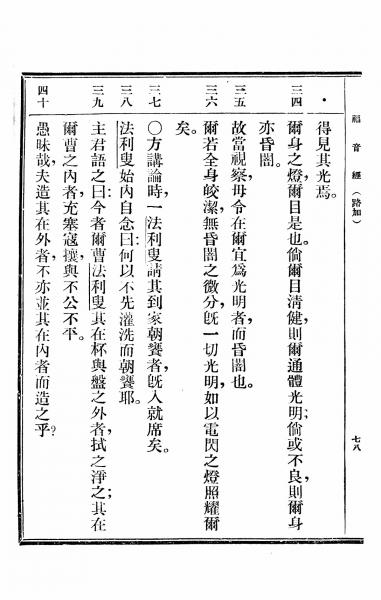 福音經(路加)
七八
得見其光焉。
三四
爾身之燈爾目是也。倘爾目清健,則爾通體光明;倘或不良,則爾身
亦昏闇。
三五
故當視察毋令在爾宜爲光明者,而昏闇也。
三六
爾若全身皎潔,無昏闇之微分,旣一切光明,如以電閃之燈照耀爾
矣。
三七
〇方講論時,一法利叟請其到家朝饔者,旣入就席矣。
三八
法利叟始內自念曰:何以不先灌洗而朝饔耶。
三九
主君語之曰:今者爾曹法利叟其在杯與盤之外者,拭之淨之;其在
爾曹之內者,充塞寇攘,與不公不平。
四十
愚昧哉,夫造其在外者,不亦並其在內者而造之乎?